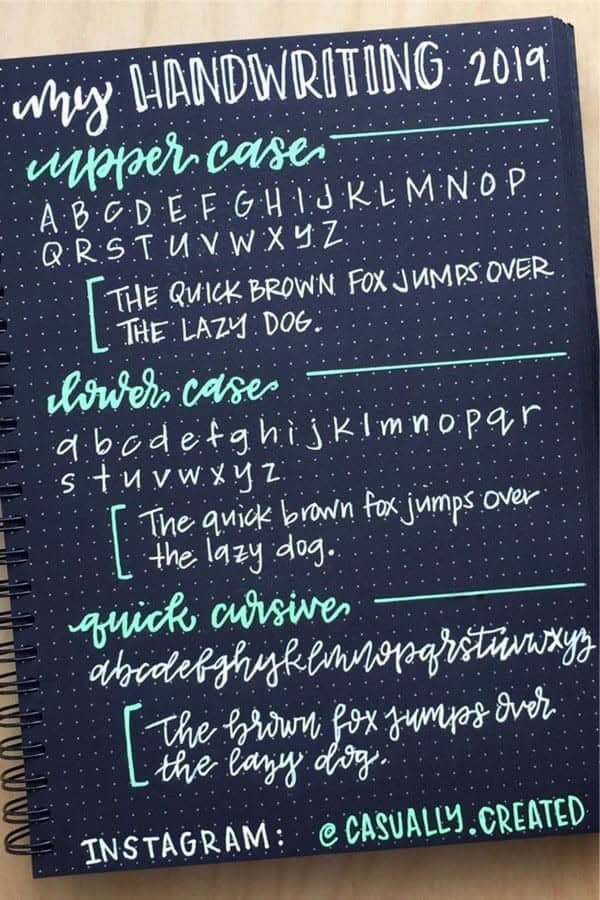 my HANDWRITING 2019
upper case
A B C D E F G H I J K L M N O P
Q R S T U V W X Y Z
THE QUICK BROWN FOX JUMPS OVER
THE LAZY DOG.
lower case
a b c d e f g h i j k l m n o p q r
s t u v w x y z
The quick brown fox jumps over
the lazy dog.
quick cursive
abcdefghijklmnopqrstuvwxyz
The brown fox jumps over
the lazy dog.
INSTAGRAM: @CASUALLY.CREATED